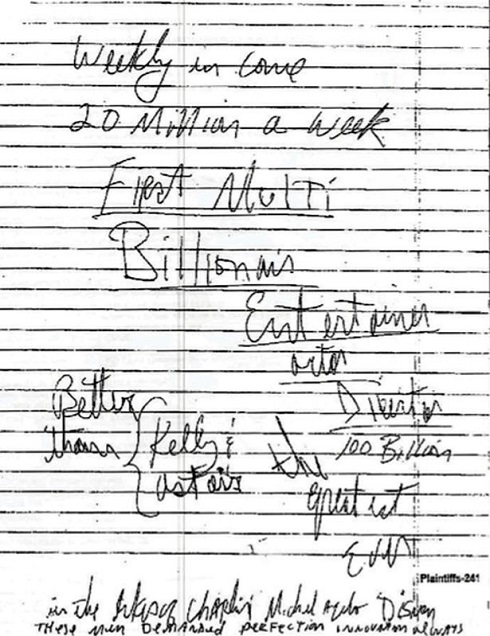 Weekly in come
20 Million a week
First Multi
Billionair
Entertainer
actor
Director
100 Billion
Better
than { Kelly &
astair
the
greatest
Ever
Plaintiffs-241
in the Chaplin Michel Disney
These men demanded perfection innovation always